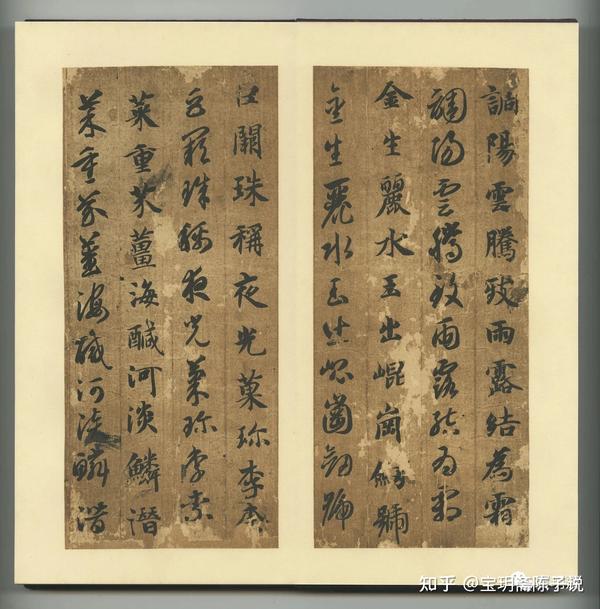 調陽雲騰致雨露結為霜
調陽雲騰致雨露結為霜
金生麗水玉出崐崗劒號
金生麗水玉出崐崗劒號
巨闕珠稱夜光菓珍李柰
巨闕珠稱夜光菓珍李柰
菜重芥薑海醎河淡鱗潛
菜重芥薑海醎河淡鱗潛
知乎 @宝玥斋陈子